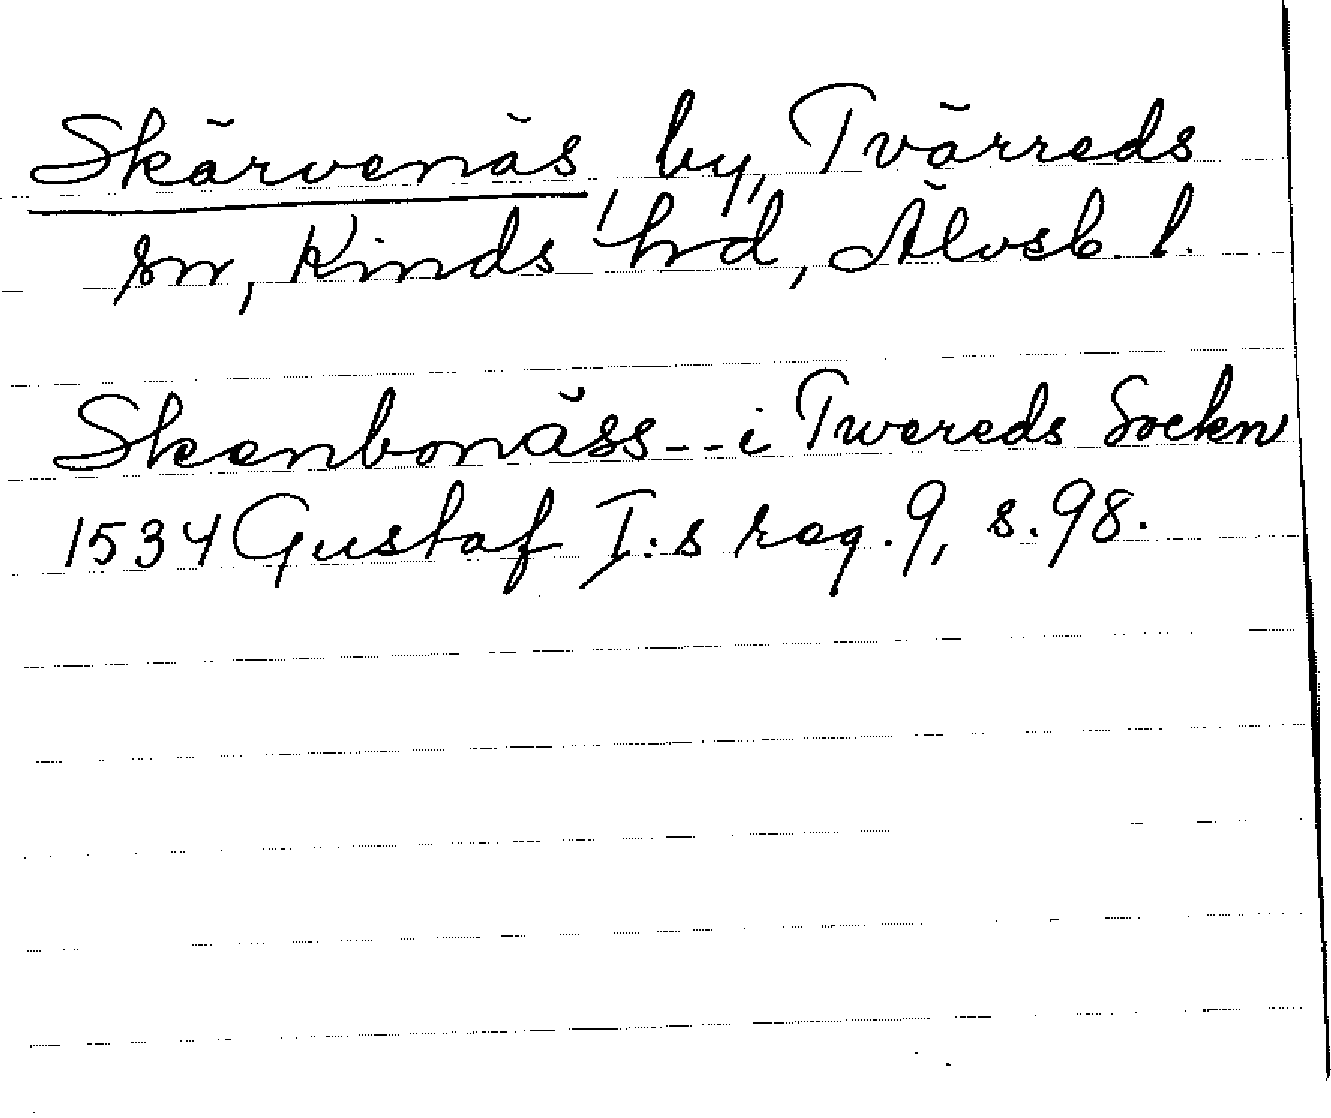 Skärvenäs, by, Tvärreds
sn, Kinds hd, Älvsb. l.
Skenbonäss -- i Twereds Sockn
1534 Gustaf I:s reg. 9, s. 98.